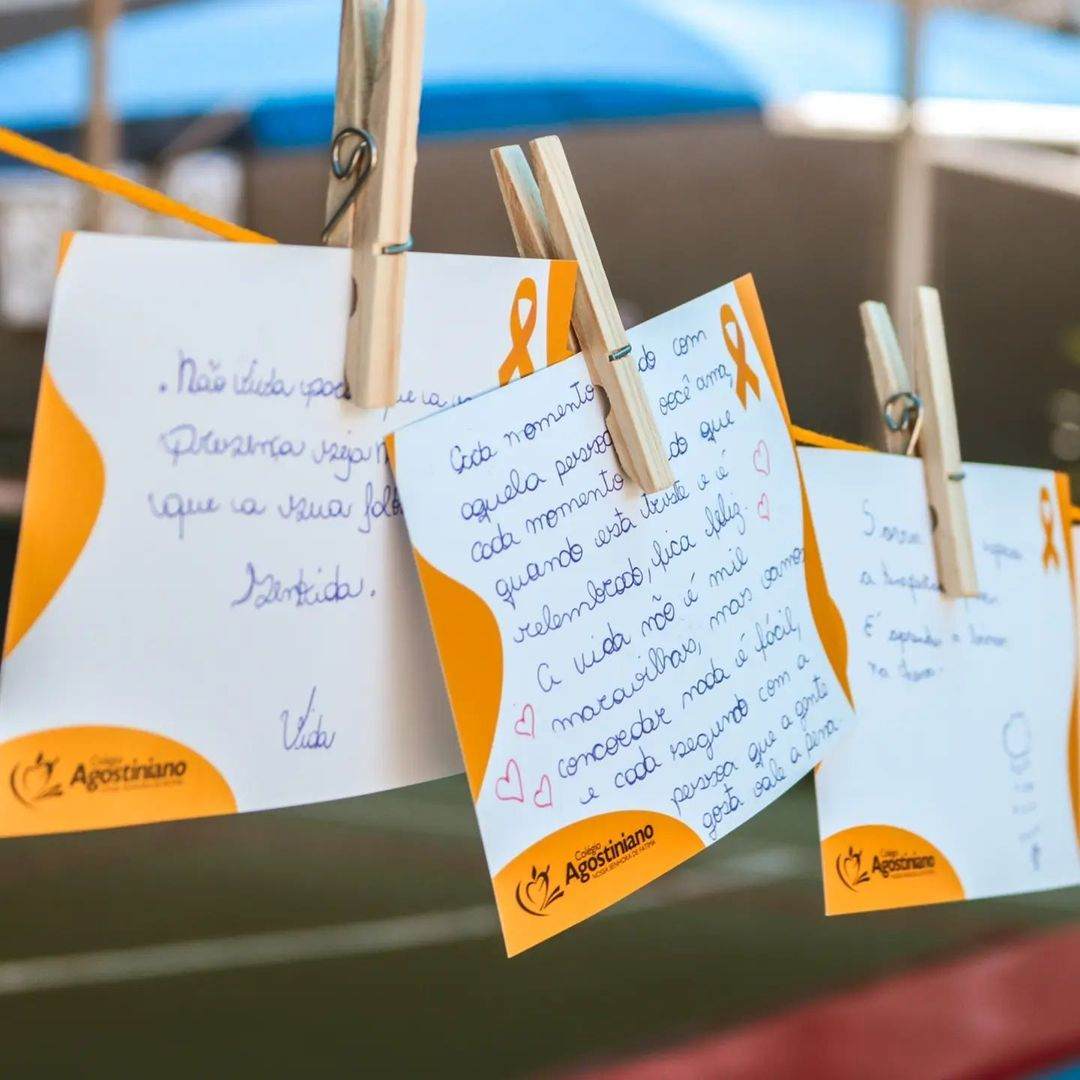 . Não viva para que a
presença seja
que a sua falta
sentida.
Vida
Colégio
Agostiniano
Cada momento com
aquela pessoa você ama,
cada momento que
quando está triste e é
relembrado, fica feliz.
A vida não é mil
maravilhas, mas vamos
concordar nada é fácil,
e cada segundo com a
pessoa que a gente
gosta vale a pena
Colégio
Agostiniano
NOSSA SENHORA DE FÁTIMA
a
É aprender a
na
Colégio
Agostiniano